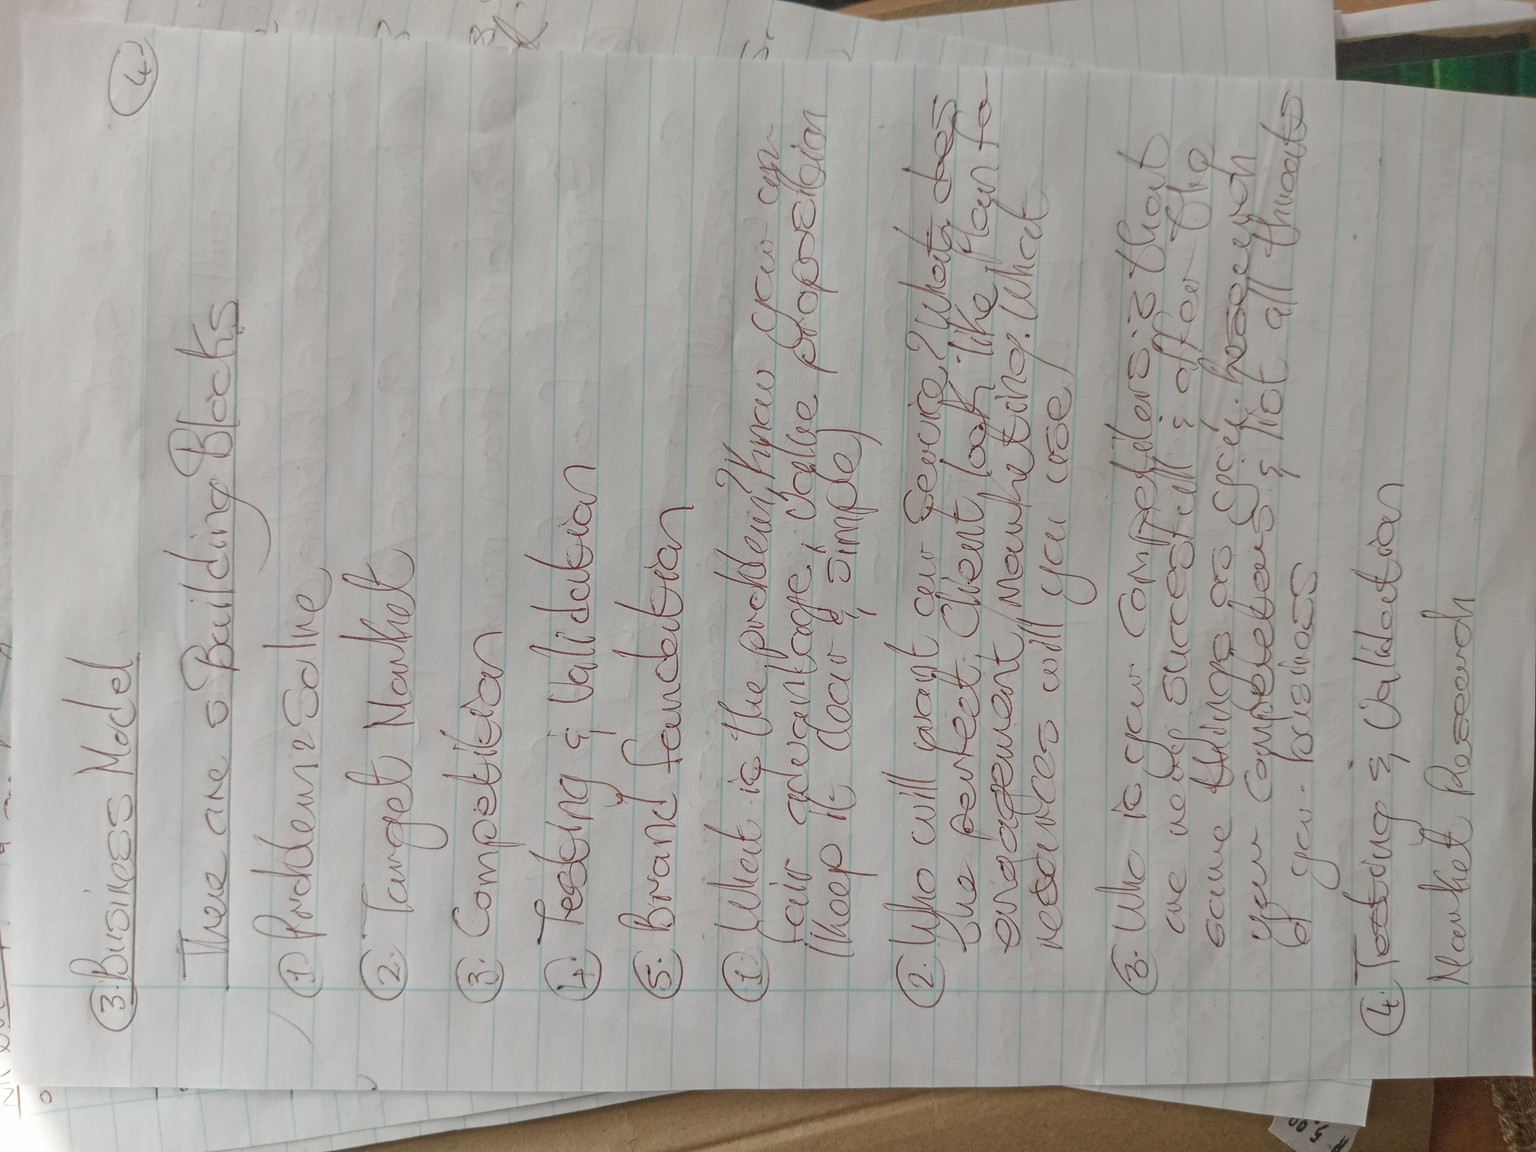 4
3. Business Model
There are 5 Building Blocks
1. Problem 2 Solve
2. Target Market
3. Competition
4. Testing & Validation
5. Brand foundation
1. What is the problem? Know your un-
fair advantage, value proposition
(keep it clear & simple)
2. Who will want our service? What does
the perfect client look like, plan for
engagement, Marketing. What
resources will you use)
3. Who is your competitors? that
are not successfull & offer the
same things as you. Research
your competetors & list all threats
of your business
4. Testing & Validation
Market Research